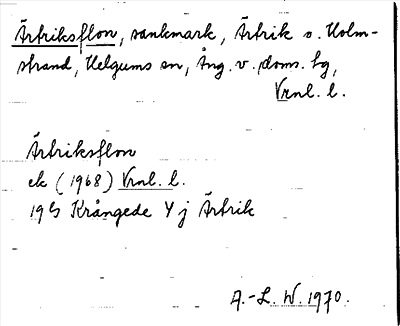 Ärtriksflon, sankmark, Ärtrik o. Holm-
strand, Helgums sn, Ång. v. doms. hg,
Vrnl. l.
Ärtriksflon
ek (1968) Vrnl. l.
19G Krångede Y j Ärtrik
A.-L. W. 1970.